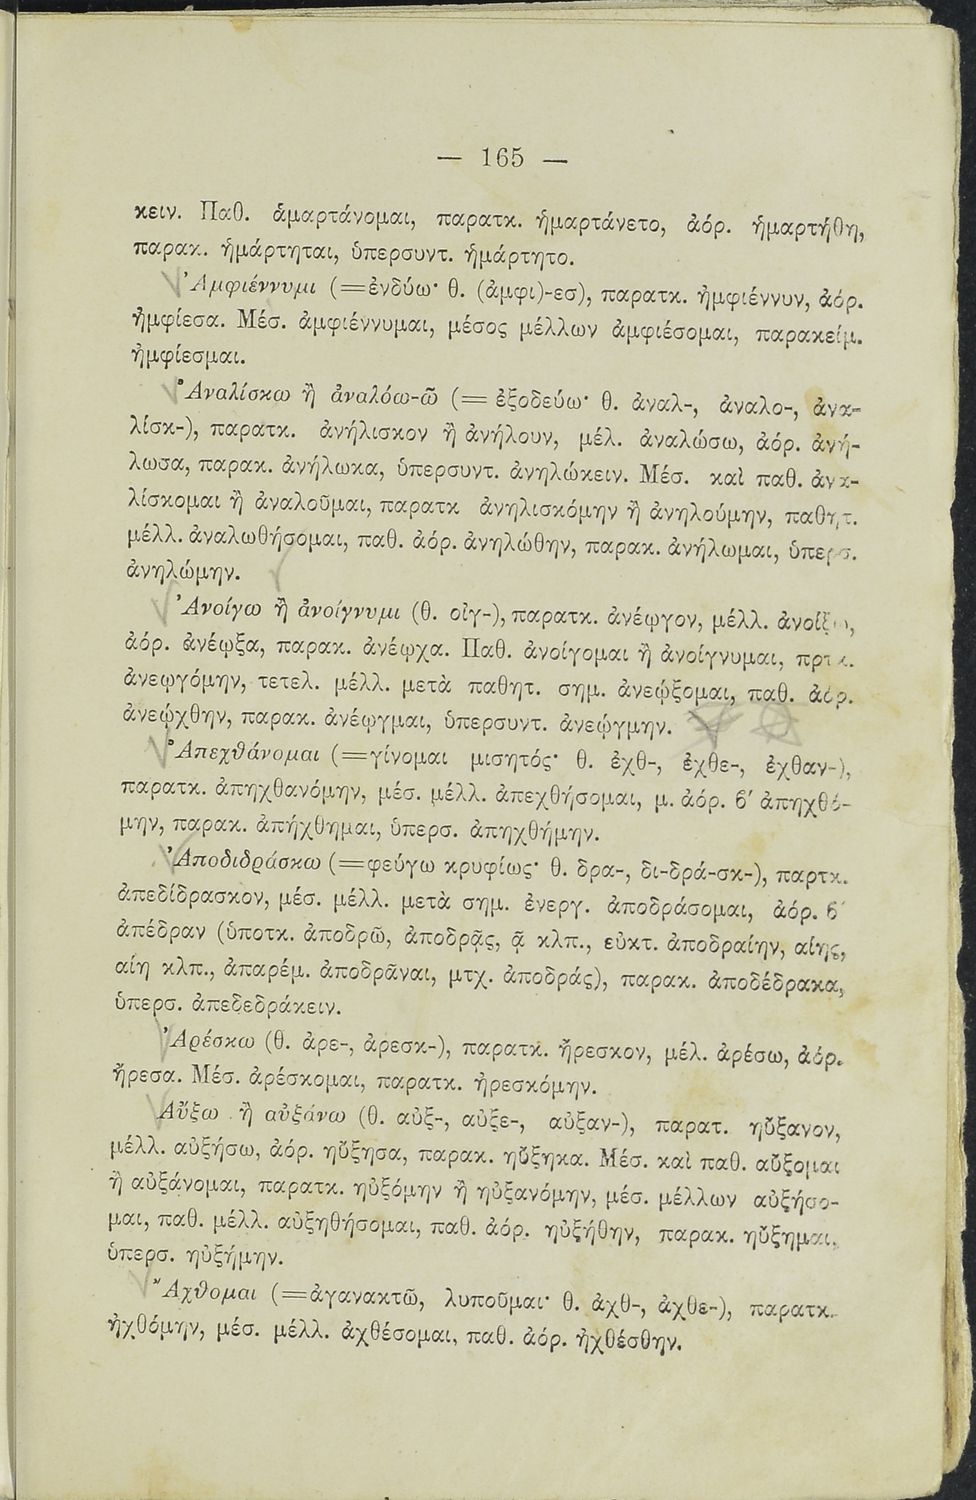 — 165 —
κειν. Παθ. ἁμαρτάνομαι, παρατκ. ἡμαρτάνετο, ἀόρ. ἡμαρτήθη,
παρακ. ἡμάρτηται, ὑπερσυντ. ἡμάρτητο.
Ἀμφιέννυμι (=ἐνδύω· θ. (ἀμφι)-εσ), παρατκ. ἠμφιέννυν, ἀόρ.
ἠμφίεσα. Μέσ. ἀμφιέννυμαι, μέσος μέλλων ἀμφιέσομαι, παρακείμ.
ἠμφίεσμαι.
Ἀναλίσκω ἢ ἀναλόω-ῶ (= ἐξοδεύω· θ. ἀναλ-, ἀναλο-, ἀνα-
λίσκ-), παρατκ. ἀνήλισκον ἢ ἀνήλουν, μέλ. ἀναλώσω, ἀόρ. ἀνή-
λωσα, παρακ. ἀνήλωκα, ὑπερσυντ. ἀνηλώκειν. Μέσ. καὶ παθ. ἀνα-
λίσκομαι ἢ ἀναλοῦμαι, παρατκ ἀνηλισκόμην ἢ ἀνηλούμην, παθητ.
μέλλ. ἀναλωθήσομαι, παθ. ἀόρ. ἀνηλώθην, παρακ. ἀνήλωμαι, ὑπερσ.
ἀνηλώμην.
Ἀνοίγω ἢ ἀνοίγνυμι (θ. οἰγ-), παρατκ. ἀνέῳγον, μέλλ. ἀνοίξω,
ἀόρ. ἀνέῳξα, παρακ. ἀνέῳχα. Παθ. ἀνοίγομαι ἢ ἀνοίγνυμαι, πρτκ.
ἀνεῳγόμην, τετελ. μέλλ. μετὰ παθητ. σημ. ἀνεῴξομαι, παθ. ἀόρ.
ἀνεῴχθην, παρακ. ἀνέῳγμαι, ὑπερσυντ. ἀνεῴγμην.
Ἀπεχθάνομαι (=γίνομαι μισητός· θ. ἐχθ-, ἐχθε-, ἐχθαν-),
παρατκ. ἀπηχθανόμην, μέσ. μέλλ. ἀπεχθήσομαι, μ. ἀόρ. ϐ′ ἀπηχθό-
μην, παρακ. ἀπήχθημαι, ὑπερσ. ἀπηχθήμην.
Ἀποδιδράσκω (=φεύγω κρυφίως· θ. δρα-, δι-δρά-σκ-), παρτκ.
ἀπεδίδρασκον, μέσ. μέλλ. μετὰ σημ. ἐνεργ. ἀποδράσομαι, ἀόρ. ϐ′
ἀπέδραν (ὑποτκ. ἀποδρῶ, ἀποδρᾷς, ᾷ κλπ., εὐκτ. ἀποδραίην, αίης,
αίη κλπ., ἀπαρέμ. ἀποδρᾶναι, μτχ. ἀποδράς), παρακ. ἀποδέδρακα,
ὑπερσ. ἀπεδεδράκειν.
Ἀρέσκω (θ. ἀρε-, ἀρεσκ-), παρατκ. ἤρεσκον, μέλ. ἀρέσω, ἀόρ.
ἤρεσα. Μέσ. ἀρέσκομαι, παρατκ. ἠρεσκόμην.
Αὔξω ἢ αὐξάνω (θ. αὐξ-, αὐξε-, αὐξαν-), παρατ. ηὔξανον,
μέλλ. αὐξήσω, ἀόρ. ηὔξησα, παρακ. ηὔξηκα. Μέσ. καὶ παθ. αὔξομαι
ἢ αὐξάνομαι, παρατκ. ηὐξόμην ἢ ηὐξανόμην, μέσ. μέλλων αὐξήσο-
μαι, παθ. μέλλ. αὐξηθήσομαι, παθ. ἀόρ. ηὐξήθην, παρακ. ηὔξημαι,
ὑπερσ. ηὐξήμην.
Ἄχθομαι (=ἀγανακτῶ, λυποῦμαι· θ. ἀχθ-, ἀχθε-), παρατκ.
ἠχθόμην, μέσ. μέλλ. ἀχθέσομαι, παθ. ἀόρ. ἠχθέσθην.